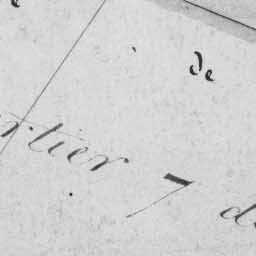 de
rtier 7 d